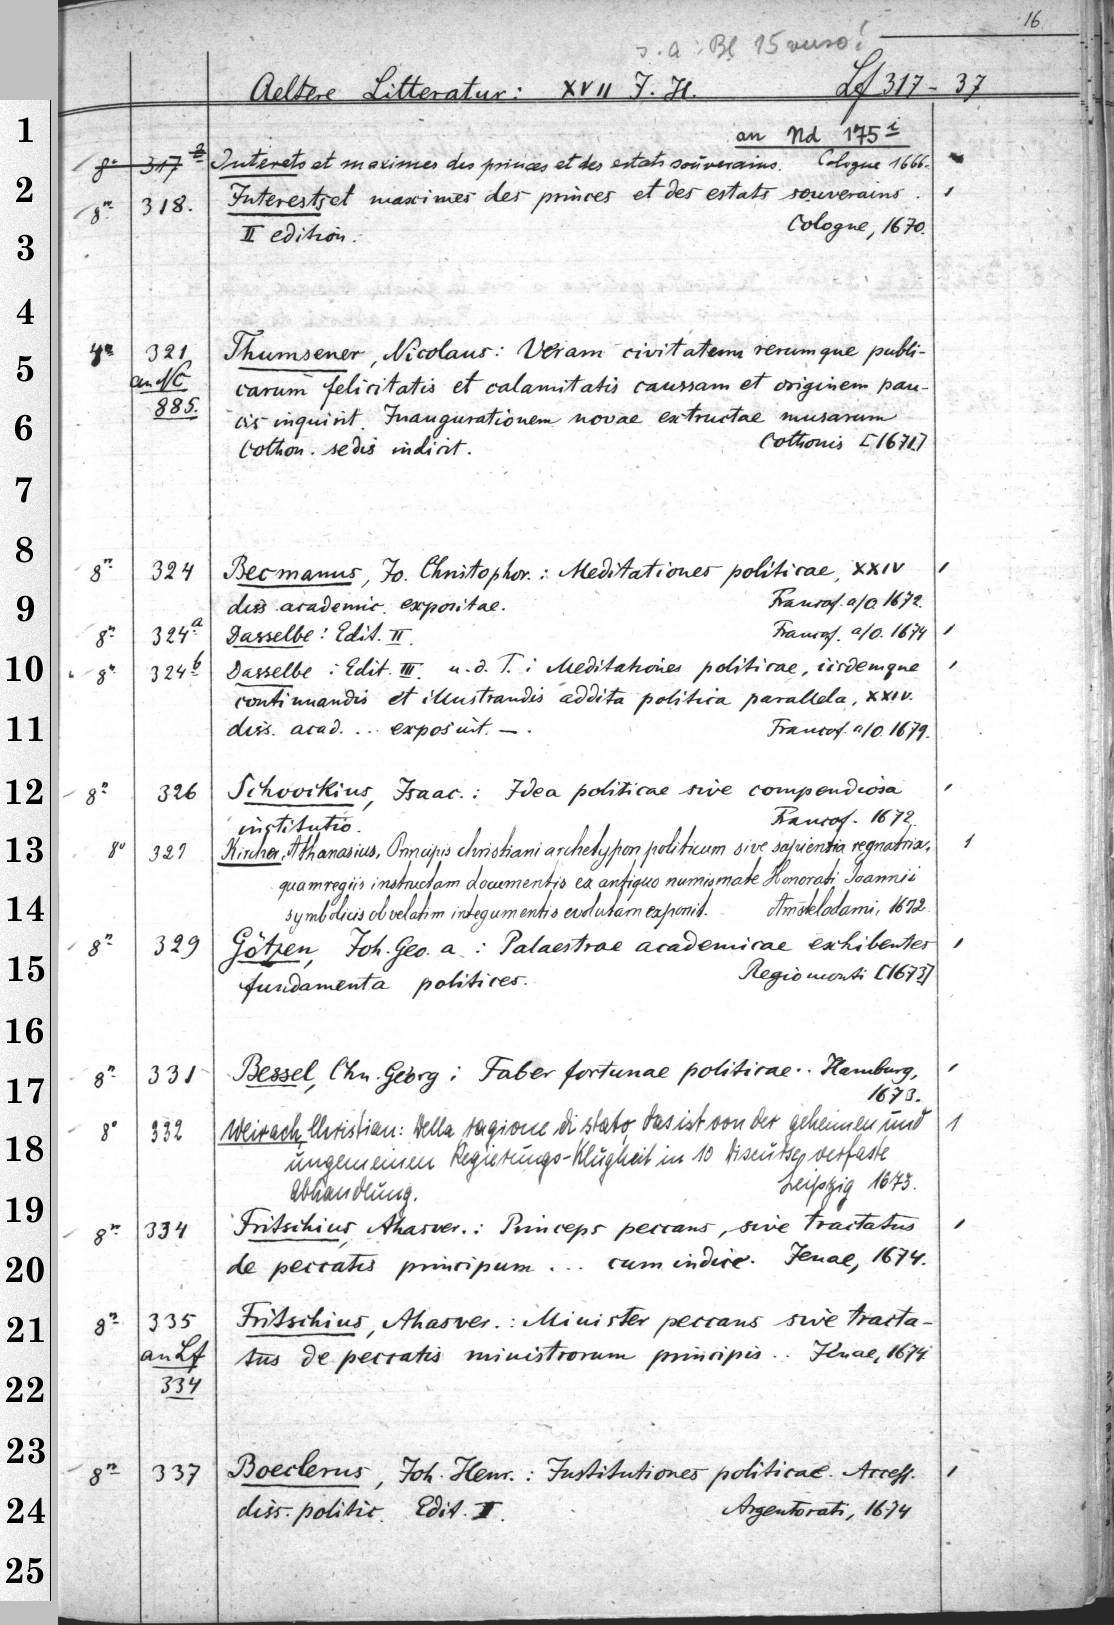 16.
s. a: Bl 15 verso!
Aeltere Litteratur: XVII J. H. Lf 317-37
an Nd 175 i
8° 317 a Interets et maximes des princes et des estats souverains. Cologne 1666.
8° 318. Interests et maximes des princes et des estats souverains. 1
II edition. Cologne, 1670.
4° 321 Thumsener, Nicolaus: Veram civitatem rerumque publi-
an Nc carum felicitatis et calamitatis caussam et originem pau-
885. cis inquirit. Inaugurationem novae extructae musarum
Cothon. sedis indicit. Cothonis [1671]
8° 324 Becmanus, Jo. Christophor.: Meditationes politicae, XXIV 1
diss. academic. expositae. Francof. a/O. 1672.
8° 324 a Dasselbe: Edit. II. Francof. a/O. 1674 1
8° 324 b Dasselbe: Edit. III. u. d. T.: Meditationes politicae, iisdemque 1
continuandis et illustrandis addita politica parallela, XXIV.
diss. acad. ... exposuit. —. Francof. a/O. 1679.
8° 326 Schoockius, Isaac.: Idea politicae sive compendiosa 1
institutio. Francof. 1672.
8° 327 Kircher, Athanasius, Principis christiani archetypon politicum sive sapientia regnatrix, 1
quam regiis instructam documentis ex antiquo numismate Honorati Joannii
symbolicis obvelatim integumentis evolutam exponit. Amstelodami, 1672.
8° 329 Götzen, Joh. Geo. a.: Palaestrae academicae exhibentes 1
fundamenta politices. Regiomonti [1673]
8° 331 Bessel, Chn. Georg: Faber fortunae politicae.. Hamburg, 1
1673.
8° 332 Weirach, Christian: Della ragione di stato, das ist von der geheimen und 1
ungemeinen Regierungs-Klugheit in 10 Discursen verfaste
Abhandlung. Leipzig 1673.
8° 334 Fritschius, Ahasver.: Princeps peccans, sive tractatus 1
de peccatis principum ... cum indice. Jenae, 1674.
8° 335 Fritschius, Ahasver.: Minister peccans sive tracta-
an Lf tus de peccatis ministrorum principis.. Jenae, 1674.
334
8° 337 Boeclerus, Joh. Henr.: Institutiones politicae. Access. 1
diss. politic. Edit. II. Argentorati, 1674
1
2
3
4
5
6
7
8
9
10
11
12
13
14
15
16
17
18
19
20
21
22
23
24
25